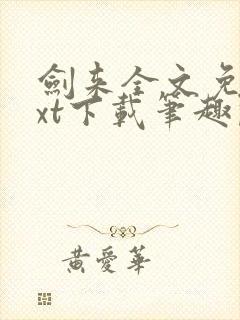 劍来全文免
xt下載筆趣
黃愛華